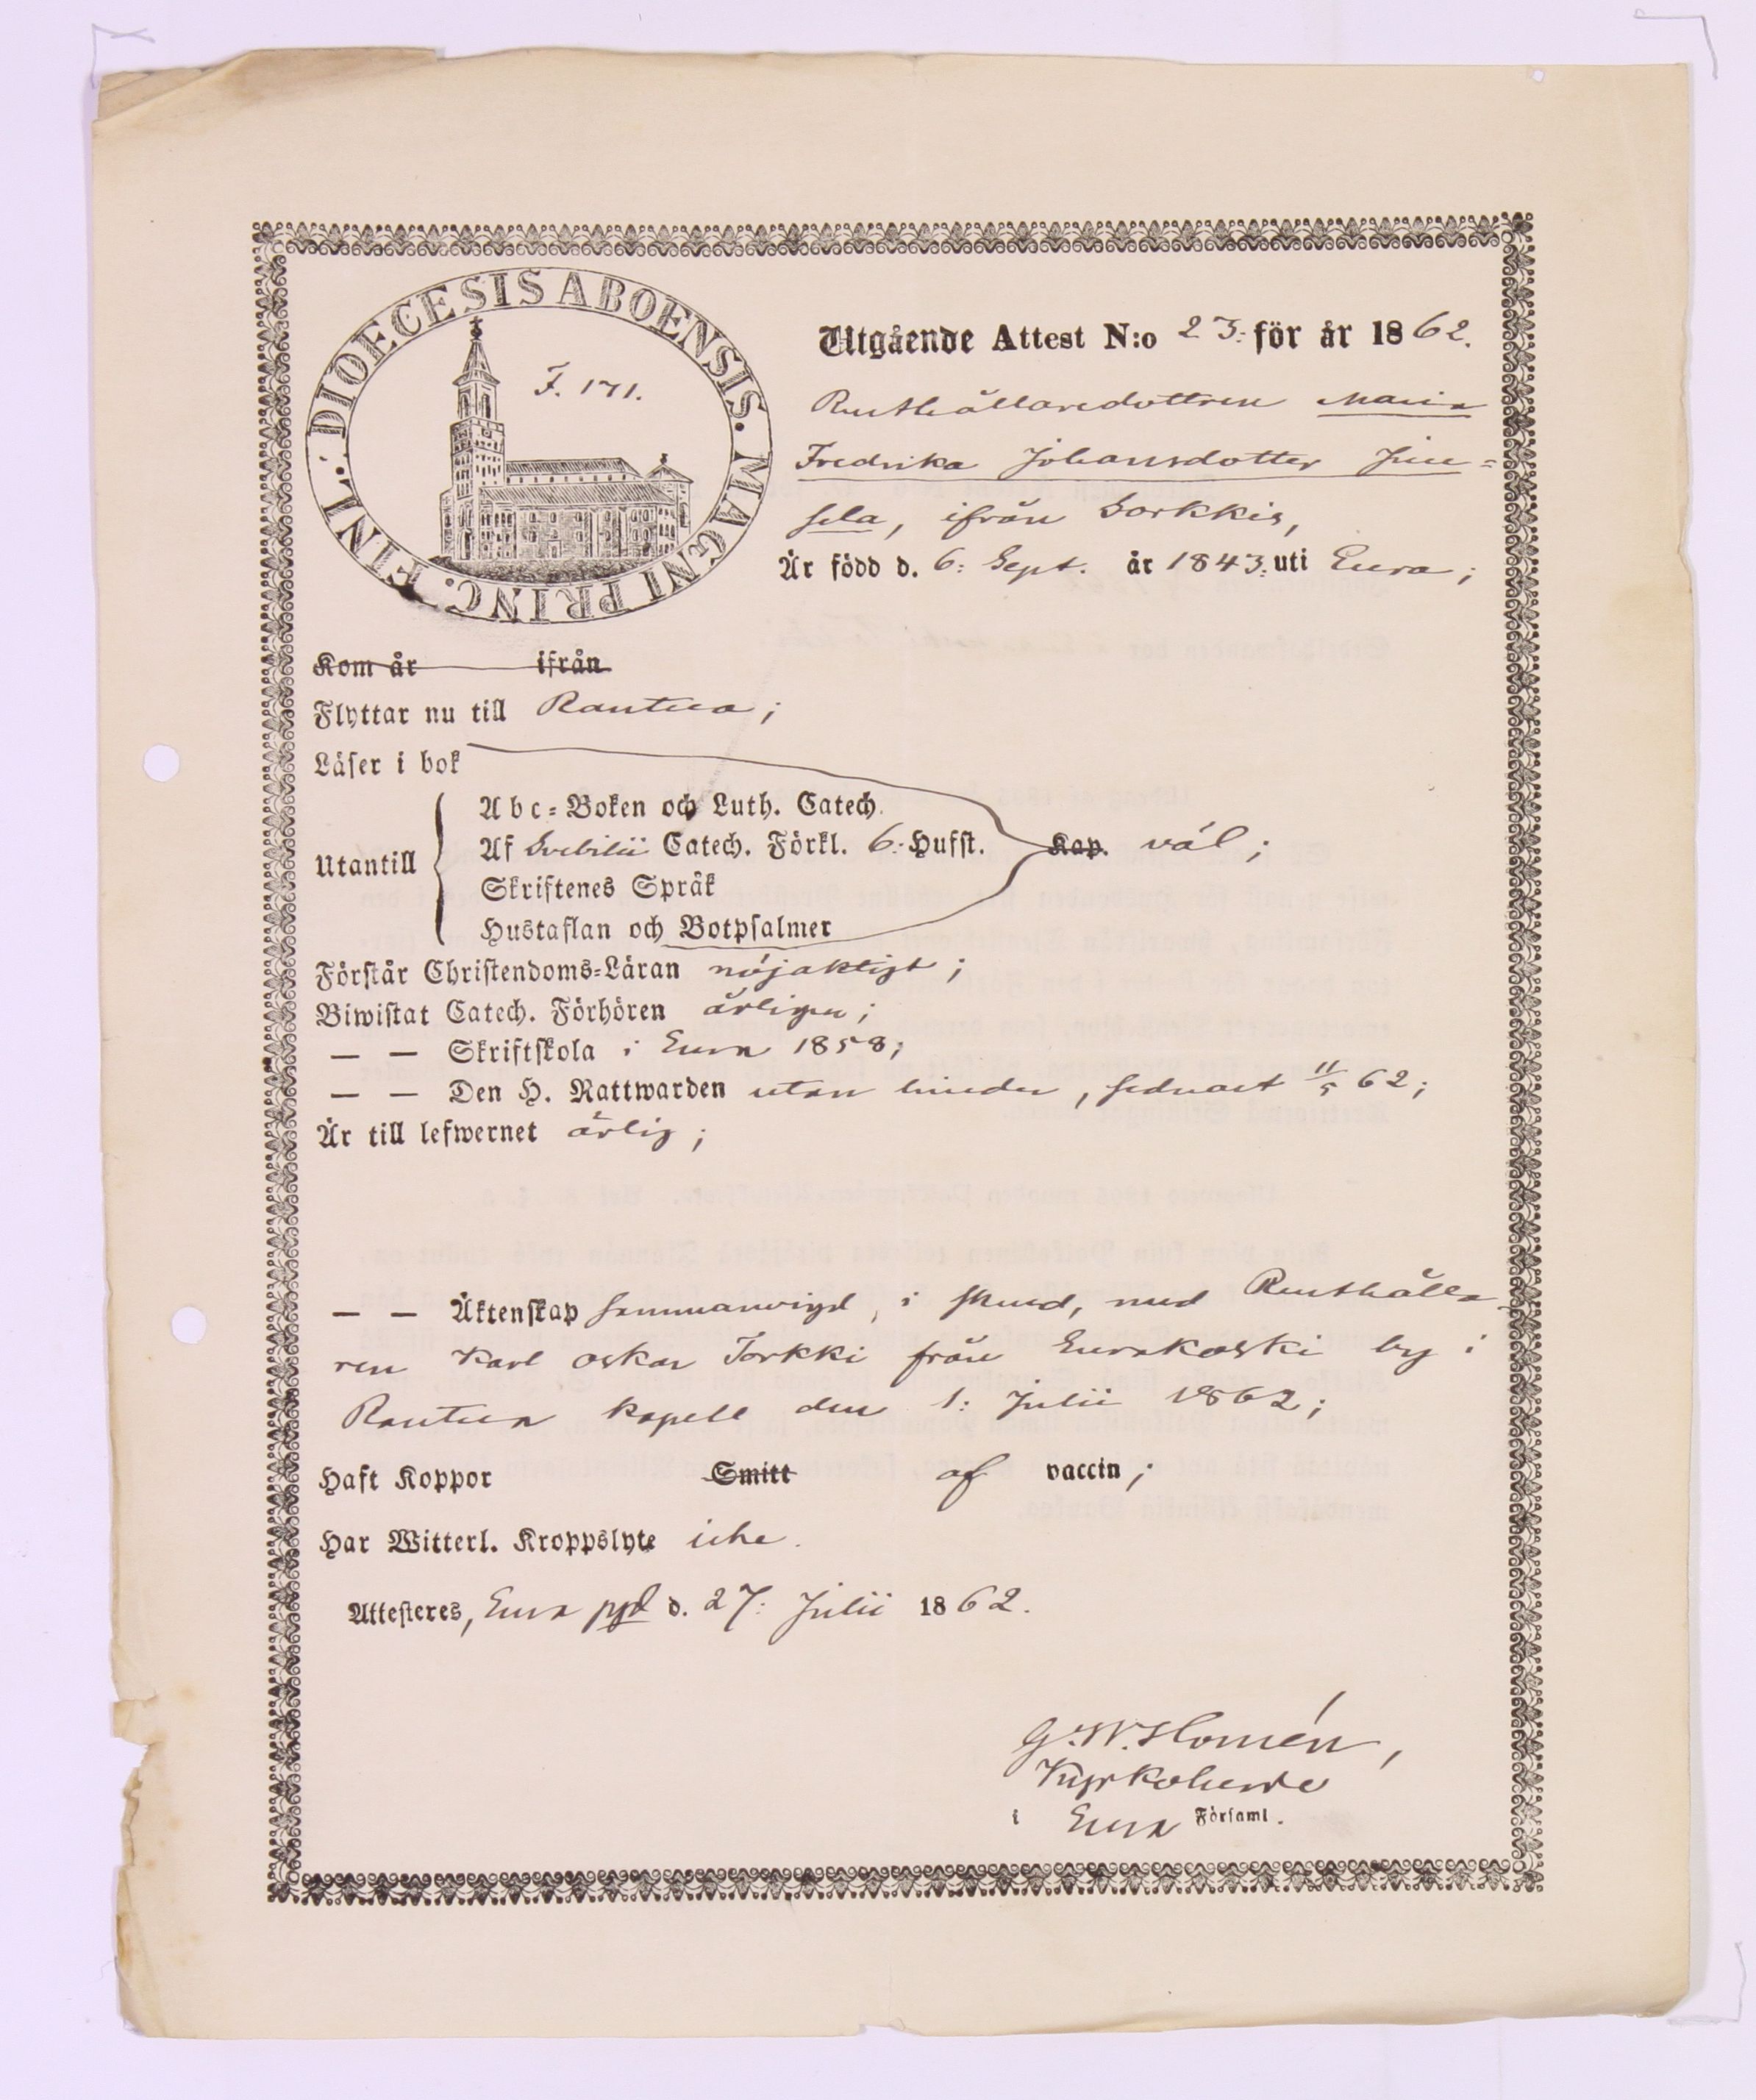 DIOECESIS ABOENSIS. MAGNI PRINC. FINL.
F. 171.
Utgående Attest N:o 23. för år 1862.
Rusthållaredottren Maria
Fredrika Johansdotter
sela, ifrån Sorkkis,
Är född d. 6: Sept. år 1843: uti Eura;
Kom år ifrån
Flyttar nu till Rautua;
Läser i bok
Utantill
Abc=Boken och Luth. Catech.
Af Svebilii Catech. Förkl. 6: Hufst. Kap. väl;
Skriftenes Språk
Hustaflan och Botpsalmer
Förstår Christendoms=Läran nöjaktigt;
Biwistat Catech. Förhören årligen;
— — Skriftskola i Eura 1858;
— — Den H. Nattwarden utan hinder, sednast 11/5 62;
Är till lefwernet ärlig;
— — Äktenskap sammanvigd, i Eura, med Rusthålla-
ren Karl Oskar Torkki från Eurakoski by i
Rautua kapell den 1: Julii 1862;
Haft Koppor Smitt af vaccin;
Har Witterl. Kroppslyte icke.
Attesteres, Eura pgd d. 27: Julii 1862.
G. W. Homén,
Kyrkoherde
i Eura Församl.